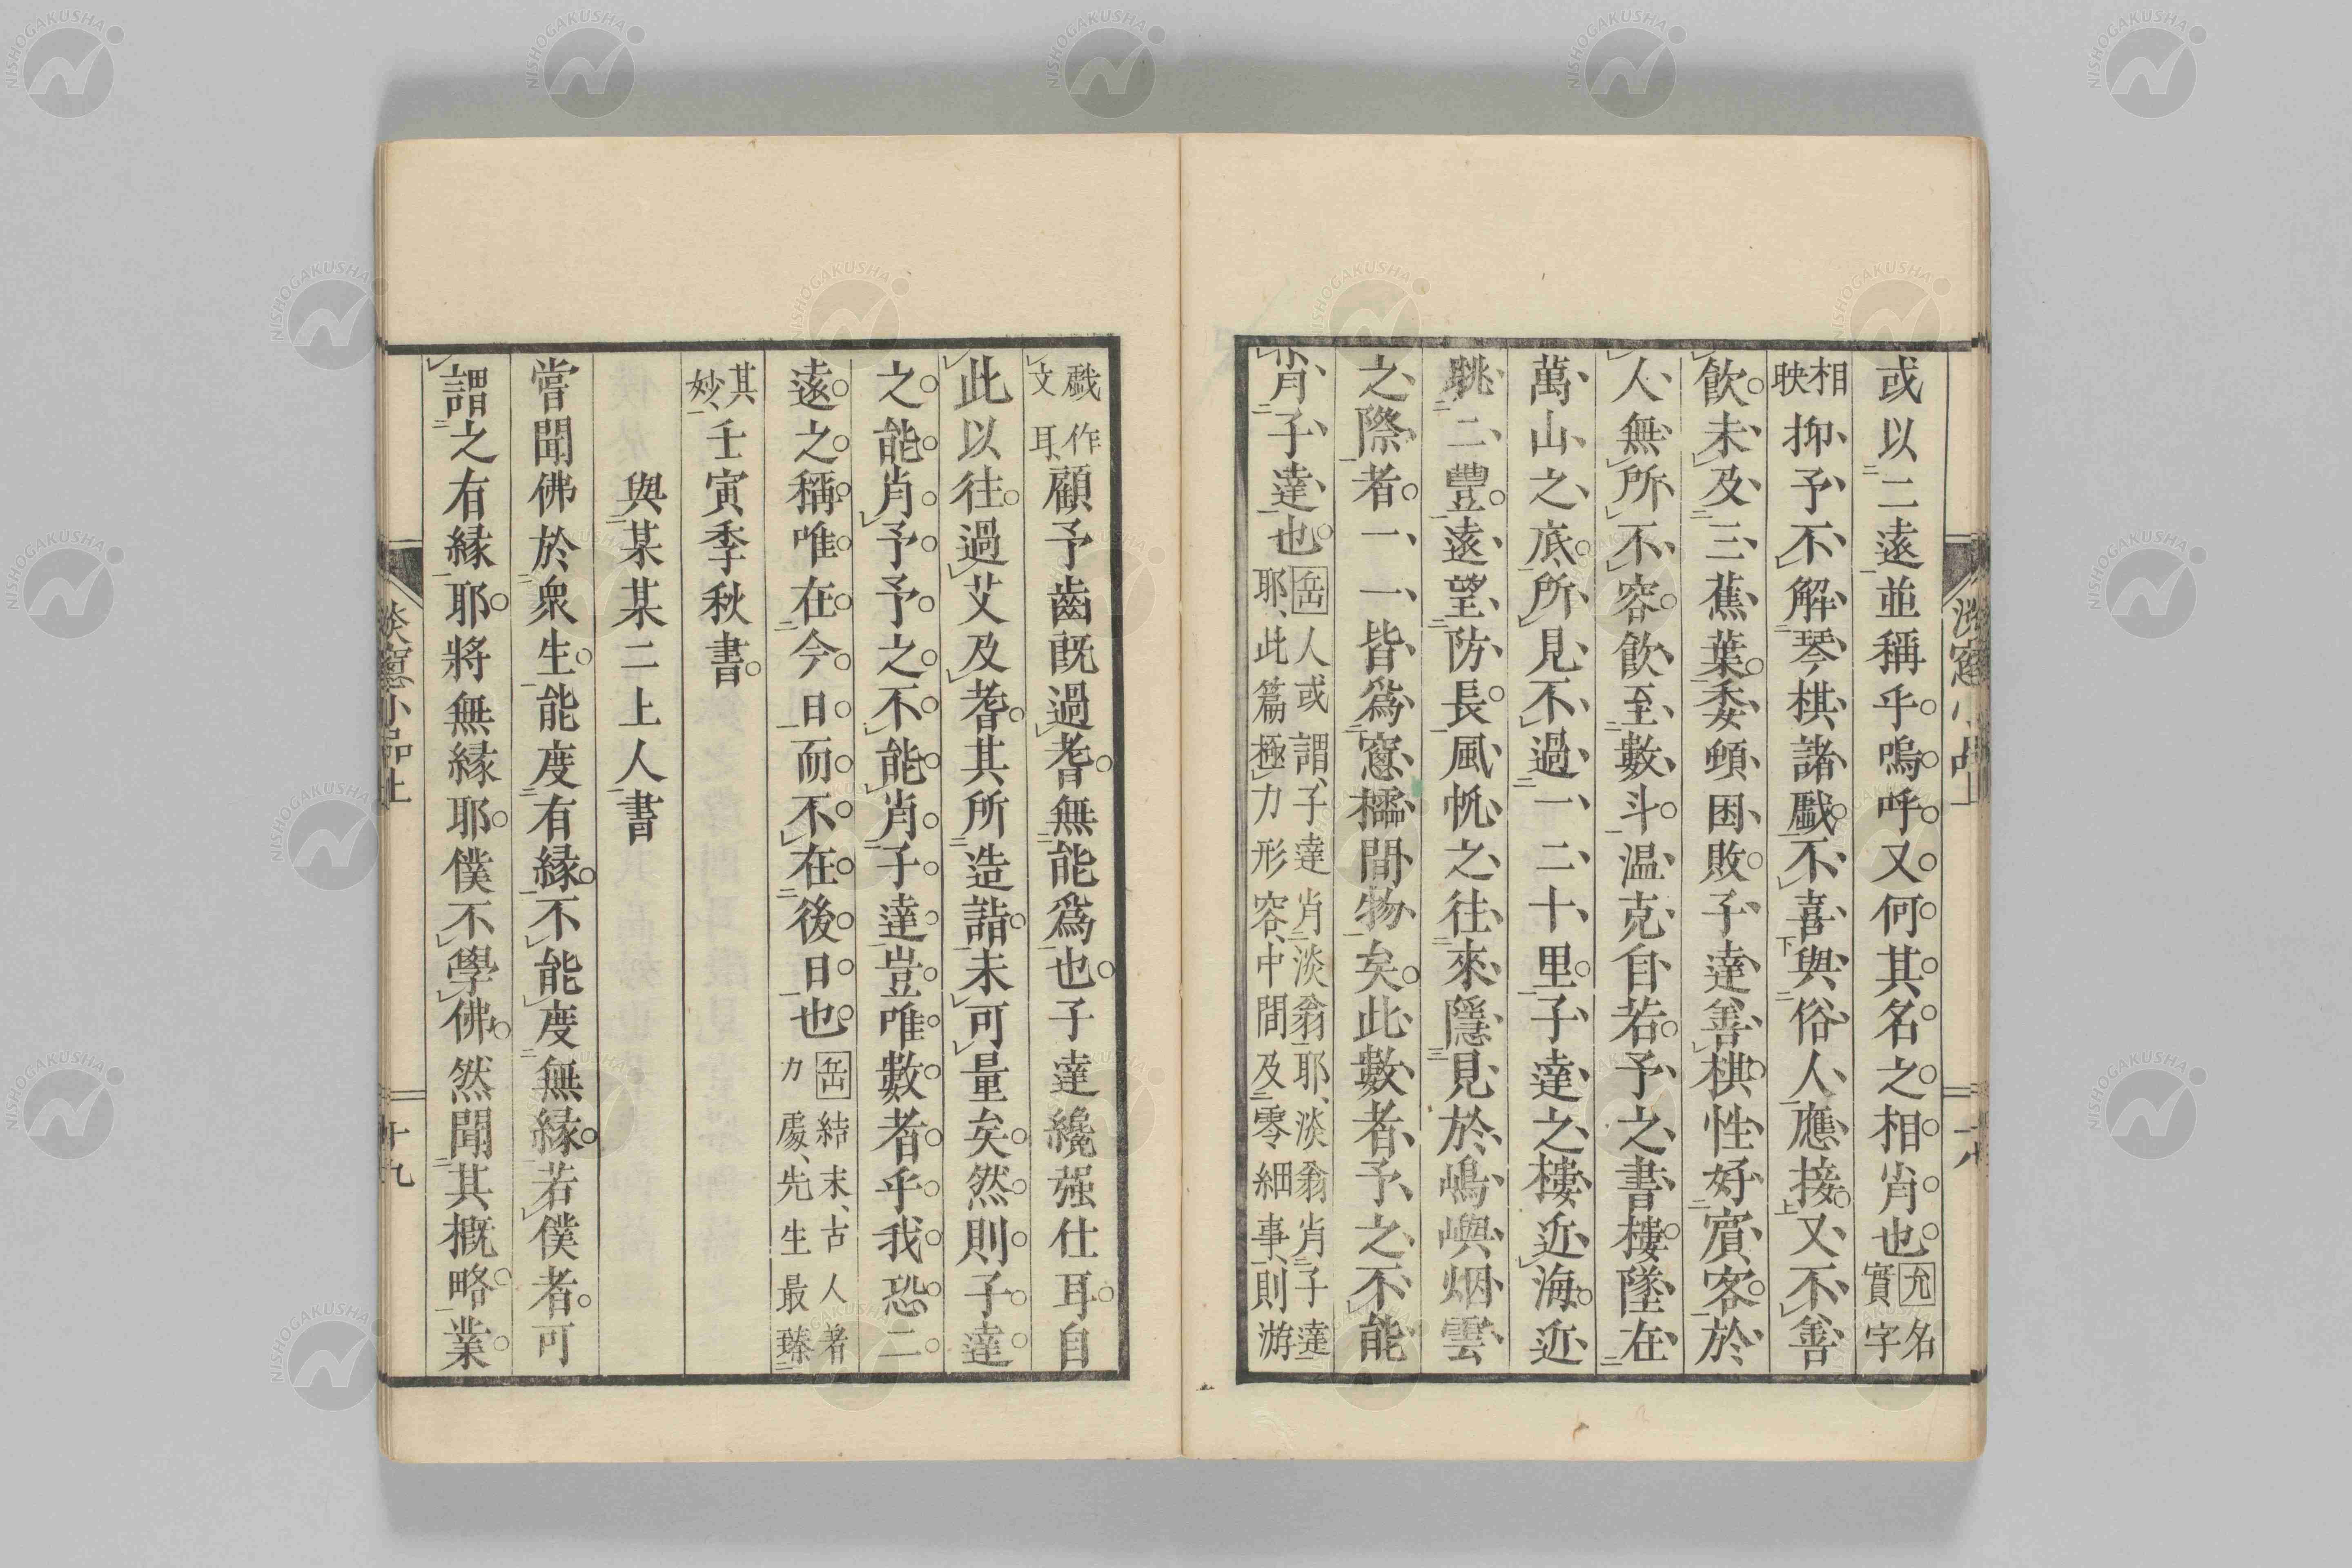 或以二遠並稱乎嗚呼又何其名之相肖也允名實字
相映抑予不解琴棋諸戲不喜與俗人應接又不善
飲未及三蕉葉委頓困敗子達善棋性好賓客於
人無所不容飲至數斗温克自若予之書樓墜在
萬山之底所見不過一二十里子達之樓近海近
眺二豐遠望防長風帆之往來隱見於嶋嶼烟雲
之際者一一皆爲窻櫺間物矣此數者予之不能
肖子達也岳人或謂子達肖淡翁耶淡翁肖子達耶此篇極力形容中間及零細事則游
戲作文耳顧予齒既過耆無能爲也子達纔强仕耳自
此以往過艾及耆其所造詣未可量矣然則子達
之能肖予予之不能肖子達豈唯數者乎我恐二
遠之稱唯在今日而不在後日也岳結末古人著力處先生最臻
其妙壬寅季秋書
與某某二上人書
嘗聞佛於衆生能度有縁不能度無縁若僕者可
謂之有縁耶將無縁耶僕不學佛然聞其概略業
淡窻小品上
十九